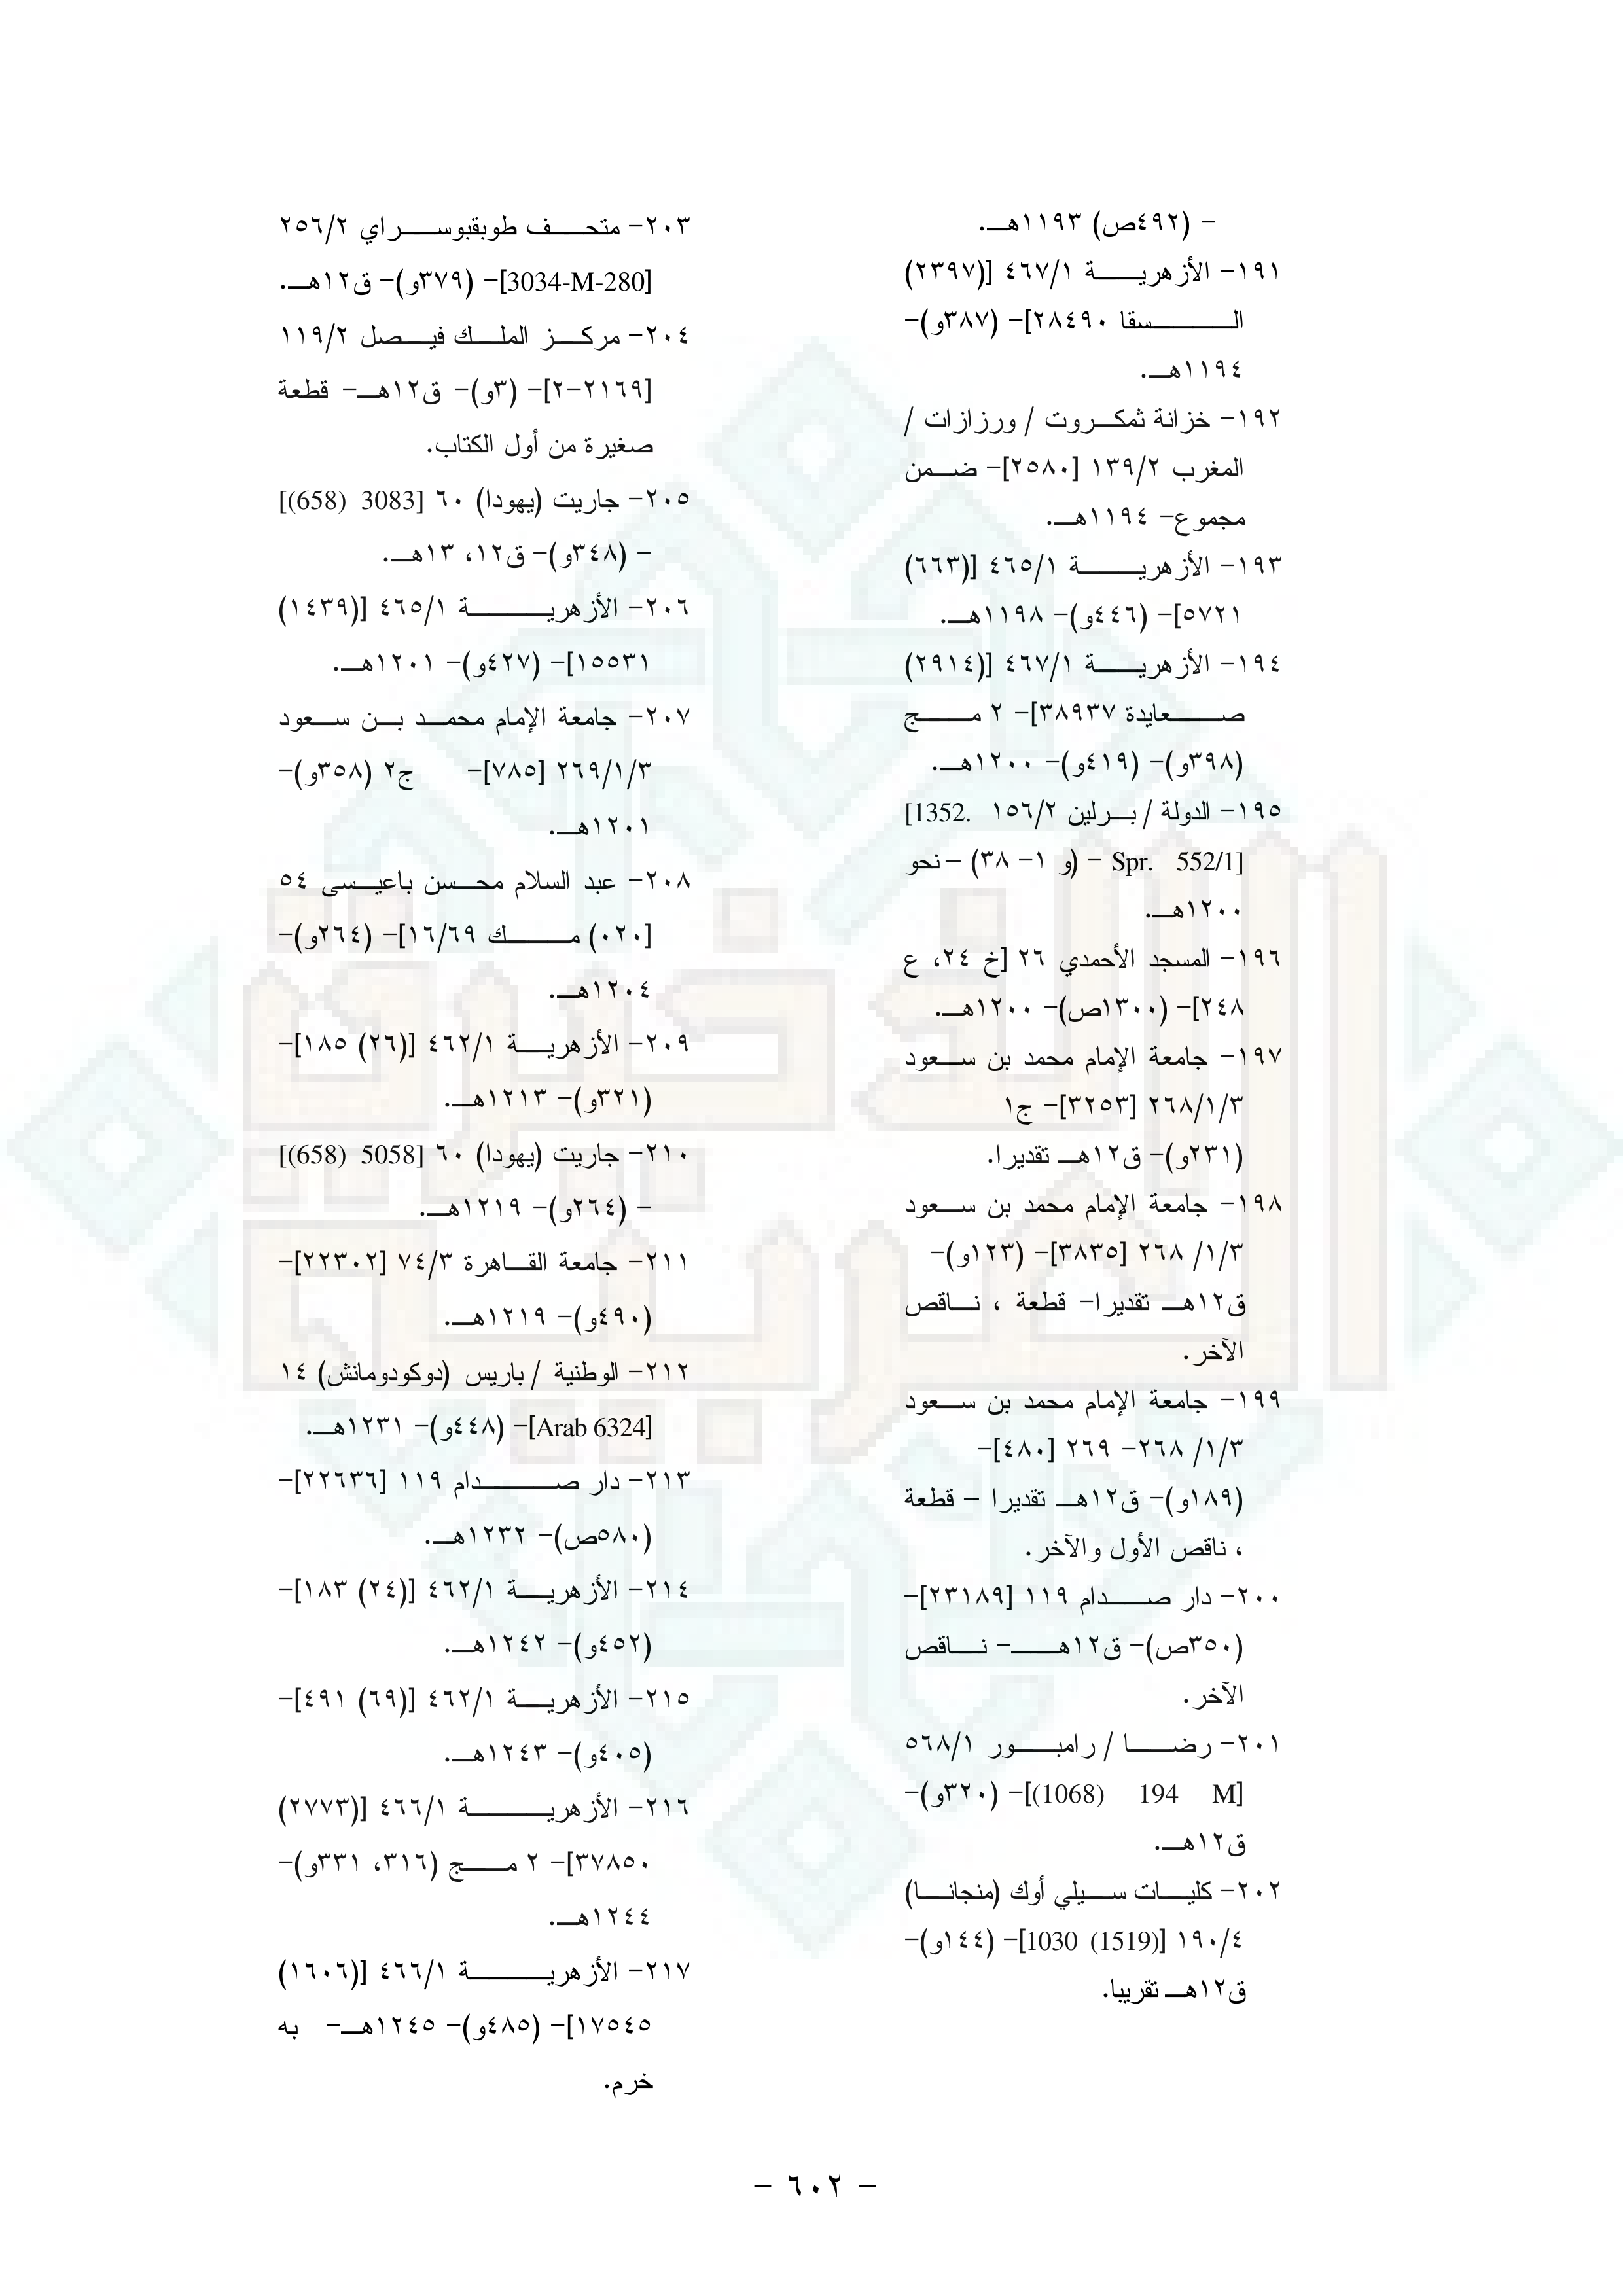 - (٤٩٢ص) ١١٩٣هـ.
١٩١- الأزهرية ٤٦٧/١ [(٢٣٩٧)
السقا ٢٨٤٩٠]- (٣٨٧و)-
١١٩٤هـ.
١٩٢- خزانة ثمكروت / ورزازات /
المغرب ١٣٩/٢ [٢٥٨٠]- ضمن
مجموع- ١١٩٤هـ.
١٩٣- الأزهرية ٤٦٥/١ [(٦٦٣)
٥٧٢١]- (٤٤٦و)- ١١٩٨هـ.
١٩٤- الأزهرية ٤٦٧/١ [(٢٩١٤)
صعايدة ٣٨٩٣٧]- ٢ مج
(٣٩٨و)- (٤١٩و)- ١٢٠٠هـ.
١٩٥- الدولة / برلين ١٥٦/٢ [1352.
Spr. 552/1] - (و ١- ٣٨) - نحو
١٢٠٠هـ.
١٩٦- المسجد الأحمدي ٢٦ [خ ٢٤، ع
٢٤٨]- (١٣٠٠ص)- ١٢٠٠هـ.
١٩٧- جامعة الإمام محمد بن سعود
٢٦٨/١/٣ [٣٢٥٣]- ج١
(٢٣١و)- ق١٢هـ تقديرا.
١٩٨- جامعة الإمام محمد بن سعود
٣/١/ ٢٦٨ [٣٨٣٥]- (١٢٣و)-
ق١٢هـ تقديرا- قطعة ، ناقص
الآخر.
١٩٩- جامعة الإمام محمد بن سعود
٣/١/ ٢٦٨- ٢٦٩ [٤٨٠]-
(١٨٩و)- ق١٢هـ تقديرا - قطعة
، ناقص الأول والآخر.
٢٠٠- دار صدام ١١٩ [٢٣١٨٩]-
(٣٥٠ص)- ق١٢هـ- ناقص
الآخر.
٢٠١- رضا / رامبور ٥٦٨/١
[(1068) 194 M]- (٣٢٠و)-
ق١٢هـ.
٢٠٢- كليات سيلي أوك (منجانا)
١٩٠/٤ [1030 (1519)]- (١٤٤و)-
ق١٢هـ تقريبا.
٢٠٣- متحف طوبقبوسراي ٢٥٦/٢
[3034-M-280]- (٣٧٩و)- ق١٢هـ.
٢٠٤- مركز الملك فيصل ١١٩/٢
[٢١٦٩-٢]- (٣و)- ق١٢هـ- قطعة
صغيرة من أول الكتاب.
٢٠٥- جاريت (يهودا) ٦٠ [3083 (658)]
- (٣٤٨و)- ق١٢، ١٣هـ.
٢٠٦- الأزهرية ٤٦٥/١ [(١٤٣٩)
١٥٥٣١]- (٤٢٧و)- ١٢٠١هـ.
٢٠٧- جامعة الإمام محمد بن سعود
٢٦٩/١/٣ [٧٨٥]- ج٢ (٣٥٨و)-
١٢٠١هـ.
٢٠٨- عبد السلام محسن باعيسى ٥٤
[(٠٢٠) مك ١٦/٦٩]- (٢٦٤و)-
١٢٠٤هـ.
٢٠٩- الأزهرية ٤٦٢/١ [(٢٦) ١٨٥]-
(٣٢١و)- ١٢١٣هـ.
٢١٠- جاريت (يهودا) ٦٠ [5058 (658)]
- (٢٦٤و)- ١٢١٩هـ.
٢١١- جامعة القاهرة ٧٤/٣ [٢٢٣٠٢]-
(٤٩٠و)- ١٢١٩هـ.
٢١٢- الوطنية / باريس (دوكودومانش) ١٤
[Arab 6324]- (٤٤٨و)- ١٢٣١هـ.
٢١٣- دار صدام ١١٩ [٢٢٦٣٦]-
(٥٨٠ص)- ١٢٣٢هـ.
٢١٤- الأزهرية ٤٦٢/١ [(٢٤) ١٨٣]-
(٤٥٢و)- ١٢٤٢هـ.
٢١٥- الأزهرية ٤٦٢/١ [(٦٩) ٤٩١]-
(٤٠٥و)- ١٢٤٣هـ.
٢١٦- الأزهرية ٤٦٦/١ [(٢٧٧٣)
٣٧٨٥٠]- ٢ مج (٣١٦، ٣٣١و)-
١٢٤٤هـ.
٢١٧- الأزهرية ٤٦٦/١ [(١٦٠٦)
١٧٥٤٥]- (٤٨٥و)- ١٢٤٥هـ- به
خرم.
- ٦٠٢ -